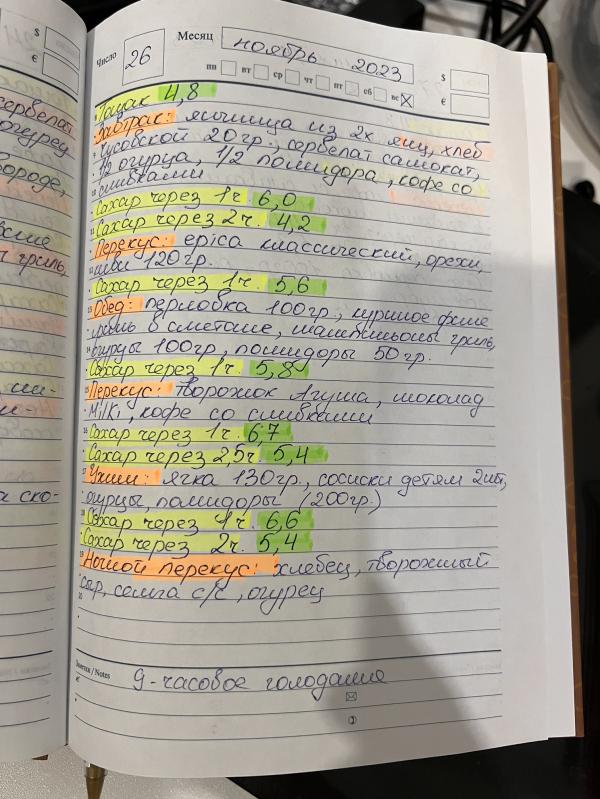 Число 26 Месяц ноябрь 2023
пн вт ср чт пт сб вс
$
€
Тощак 4,8
Завтрак: яичница из 2х яиц, хлеб
Чусовской 20гр., сервелат самокат,
1/2 огурца, 1/2 помидора, кофе со
сливками
Сахар через 1ч. 6,0
Сахар через 2ч. 4,2
Перекус: epica классический, орехи,
киви 120гр.
Сахар через 1ч. 5,6
Обед: перловка 100гр., куриное филе
в сметане, шампиньоны гриль,
огурцы 100гр, помидоры 50гр.
Сахар через 1ч. 5,8
Перекус: творожок Агуша, шоколад
Milki, кофе со сливками
Сахар через 1ч. 6,7
Сахар через 2,5ч. 5,4
Ужин: 130гр., сосиски детям 2шт,
огурцы, помидоры (200гр.)
Сахар через 1ч. 6,6
Сахар через 2ч. 5,4
Ночной перекус: хлебец, творожный
сыр, семга с/с, огурец
Заметки / Notes
9-часовое голодание